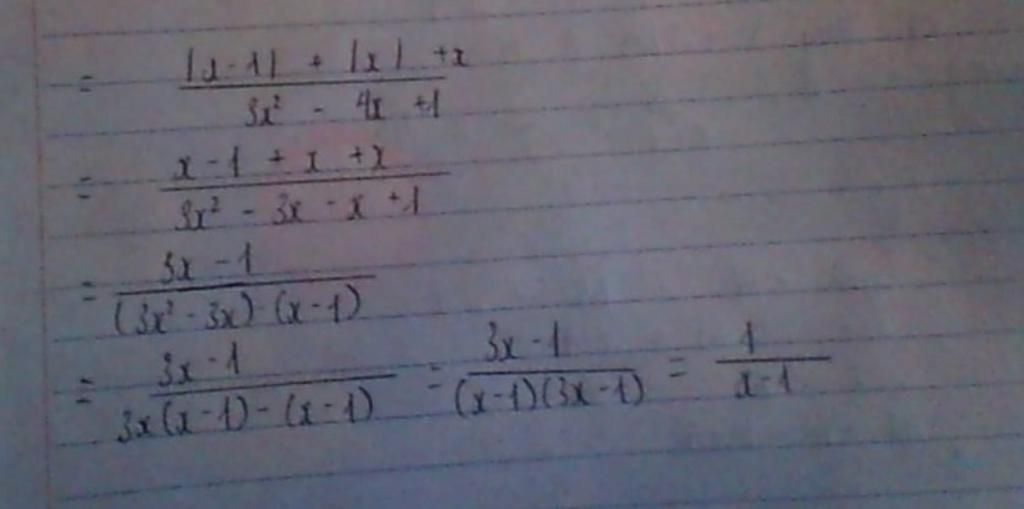 = (|x-1| + |x| +x)/(3x² - 4x +1)
= (x-1 + x +x)/(3x² - 3x - x +1)
= (3x-1)/((3x² - 3x) - (x-1))
= (3x-1)/(3x(x-1) - (x-1)) = (3x-1)/((x-1)(3x-1)) = 1/(x-1)